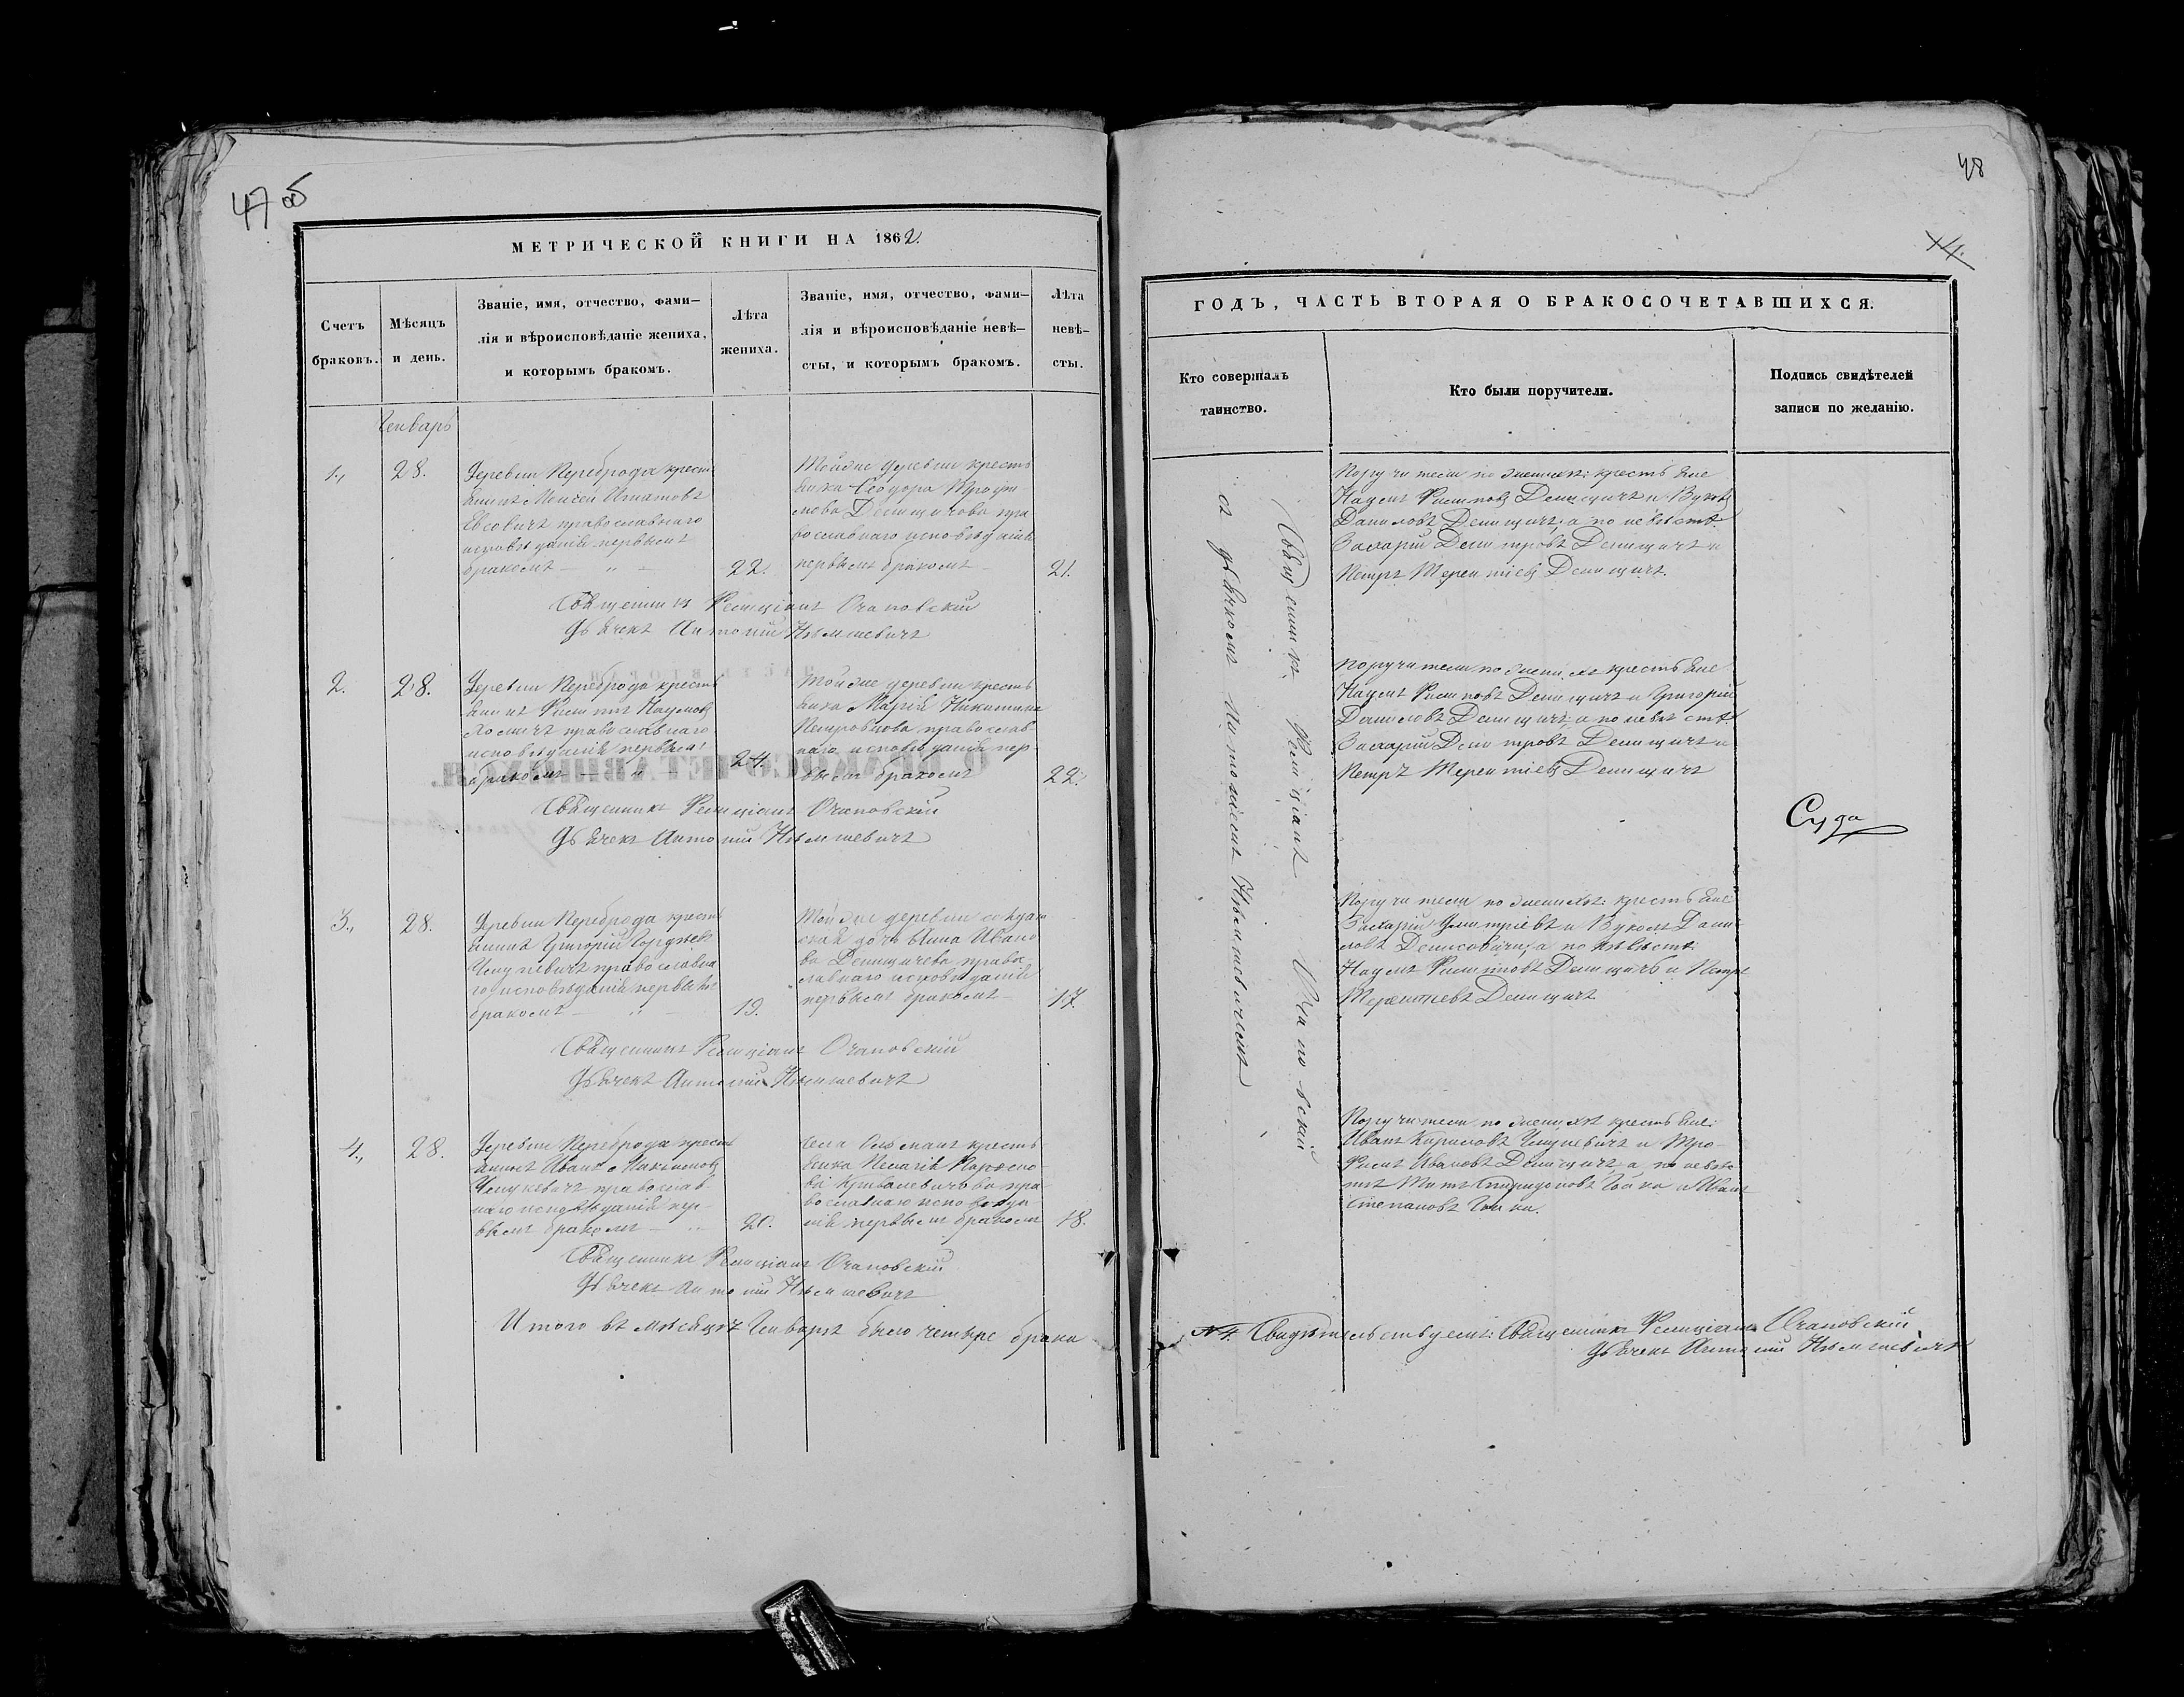 47 об
МЕТРИЧЕСКОЙ КНИГИ НА 1862.
Счетъ браковъ.
Мѣсяцъ и день.
Званіе, имя, отчество, фами-
лія и вѣроисповѣданіе жениха,
и которымъ бракомъ.
Лѣта жениха.
Званіе, имя, отчество, фами-
лія и вѣроисповѣданіе невѣ-
сты, и которымъ бракомъ.
Лѣта невѣ-
сты.
Генварь
1., 28.
Деревни Переброда кресть
янинъ Моисей Игнатовъ
Евсовичъ православнаго
исповѣданія первымъ
бракомъ — „ — 22.
Тойже деревни кресть
янка Ѳеодора Трофи
мова Денищичова пра
вославнаго исповѣданія
первымъ бракомъ — 21.
Священникъ Фелиціанъ Очаповскій
Дьячекъ Антоній Нѣмшевичъ
2. 28.
Деревни Переброда кресть
янинъ Филиппъ Наумовъ
Хомичъ православнаго
исповѣданія первымъ
бракомъ — „ — 24.
Тойже деревни кресть
янка Марія Никитина
Петровцова православ
наго исповѣданія пер-
вымъ бракомъ 22.
Священникъ Фелиціанъ Очаповскій
Дьячекъ Антоній Нѣмшевичъ
3., 28.
Деревни Переброда кресть
янинъ Григорій Сергѣевъ
Чмуневичъ православна
го исповѣданія первымъ
бракомъ — „ — 19.
Тойже деревни
дочь Анна Ивано
ва Денищичева право
славнаго исповѣданія
первымъ бракомъ — 17.
Священникъ Фелиціанъ Очаповскій
Дьячекъ Антоній Нѣмшевичъ
4., 28.
Деревни Переброда кресть
янинъ Иванъ Максимовъ
православ
наго исповѣданія пер-
вымъ бракомъ — „ 20.
Села Ольманъ кресть
янка Пелагія
ва пра
вославнаго исповѣда
нія первымъ бракомъ 18.
Священникъ Фелиціанъ Очаповскій
Дьячекъ Антоній Нѣмшевичъ
Итого въ мѣсяцѣ Генварѣ было четыре брака
48
14.
ГОДЪ, ЧАСТЬ ВТОРАЯ О БРАКОСОЧЕТАВШИХСЯ.
Кто совершалъ
таинство.
Кто были поручители.
Подпись свидѣтелей
записи по желанію.
Священникъ Фелиціанъ Очаповскій
съ дьячкомъ Антоніемъ Нѣмшевичемъ
Поручители по женихѣ: крестьяне
Наумъ Филиповъ Денищичъ и Вуколъ
Даниловъ Денищичъ, а по невѣстѣ
Захарій Димитровъ Денищичъ и
Петръ Терентіевъ Денищичъ.
Поручители по женихѣ крестьяне
Наумъ Филиповъ Денищичъ и Григорій
Даниловъ Денищичъ, а по невѣстѣ
Захарій Димитровъ Денищичъ и
Петръ Терентіевъ Денищичъ
Поручители по женихѣ: крестьяне
Захарій Димитріевъ и Вуколъ Дани
ловъ Денисовичи, а по невѣстѣ:
Наумъ Филиповъ Денищичъ и Петръ
Терентіевъ Денищичъ
Поручители по женихѣ крестьяне:
Иванъ Кириловъ Чмуневичъ и Тро-
фимъ Ивановъ Денищичъ, а по невѣс
тѣ Титъ Спиридоновъ и Иванъ
Степановъ
Суда
№ 4. Свидѣтельствуемъ: Священникъ Фелиціанъ Очаповскій
Дьячекъ Антоній Нѣмшевичъ